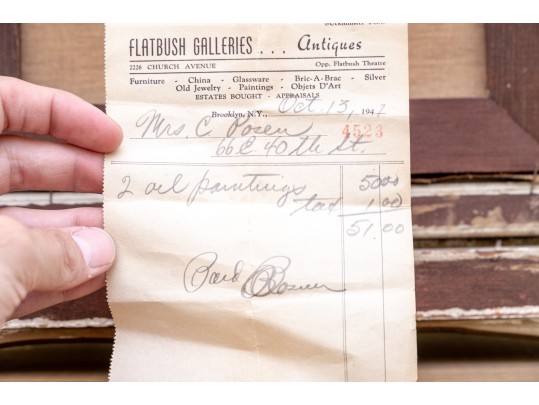 FLATBUSH GALLERIES . . . Antiques
2226 CHURCH AVENUE Opp. Flatbush Theatre
Furniture - China - Glassware - Bric-A-Brac - Silver
Old Jewelry - Paintings - Objets D'Art
ESTATES BOUGHT - APPRAISALS
Brooklyn, N.Y., Oct. 13, 1947
Mrs. C Rosen 4523
66 E 40th St.
2 oil paintings 50 00
tax 1.00
51.00
Paid